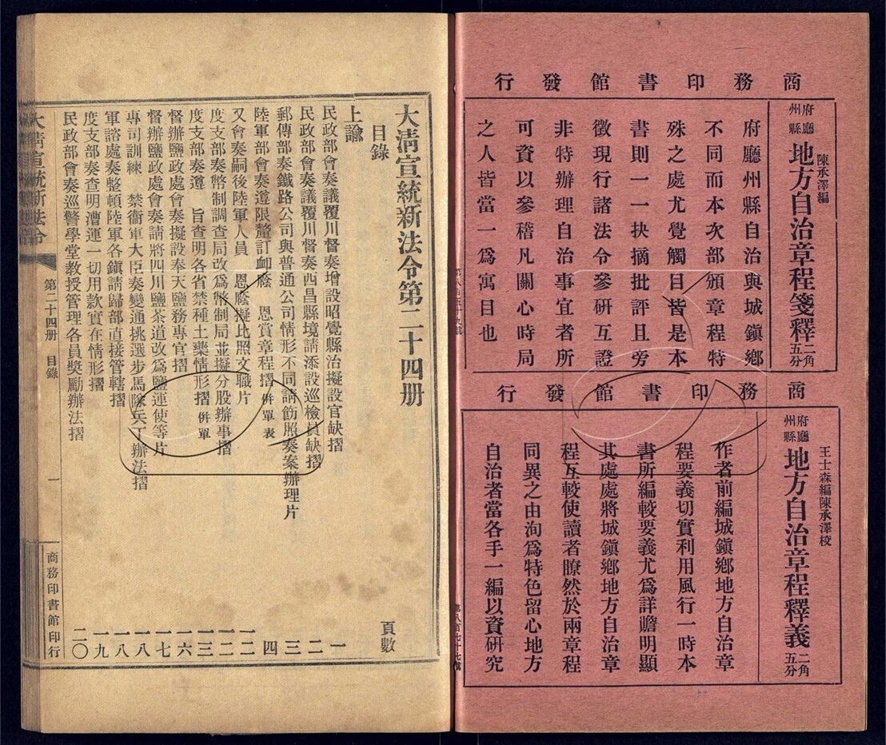 商務印書館發行
府廳州縣地方自治章程箋釋 陳承澤編 二角五分
府廳州縣自治與城鎮鄉
不同而本次部頒章程特
殊之處尤覺觸目皆是本
書則一一抉摘批評且旁
徵現行諸法令參研互證
非特辦理自治事宜者所
可資以參稽凡關心時局
之人皆當一爲寓目也
商務印書館發行
王士森編陳承澤校
府廳州縣地方自治章程釋義 二角五分
作者前編城鎮鄉地方自治章
程要義切實利用風行一時本
書所編較要義尤爲詳贍明顯
其處處將城鎮鄉地方自治章
程互較使讀者瞭然於兩章程
同異之由洵爲特色留心地方
自治者當各手一編以資研究
大清宣統新法令第二十四册
目錄 頁數
上諭
民政部會奏議覆川督奏增設昭覺縣治擬設官缺摺 一
民政部會奏議覆川督奏西昌縣境請添設巡檢員缺摺 二
郵傳部奏鐵路公司與普通公司情形不同請飭照奏案辦理片 三
陸軍部會奏遵限釐訂卹廕 恩賞章程摺 併單表 四
又會奏嗣後陸軍人員 恩廕擬比照文職片 一二
度支部奏幣制調查局改爲幣制局並擬分股辦事摺 一二
度支部奏遵 旨查明各省禁種土藥情形摺 併單 一三
督辦鹽政處會奏擬設奉天鹽務專官摺 一六
督辦鹽政處會奏請將四川鹽茶道改爲鹽運使等片 一七
專司訓練 禁衞軍大臣奏變通挑選步馬隊兵丁辦法摺 一八
軍諮處奏整頓陸軍各鎮請歸部直接管轄摺 一八
度支部奏查明漕運一切用款實在情形摺 一九
民政部會奏巡警學堂教授管理各員獎勵辦法摺 二〇
大清宣統新法令
第二十四册 目錄
一
商務印書館印行